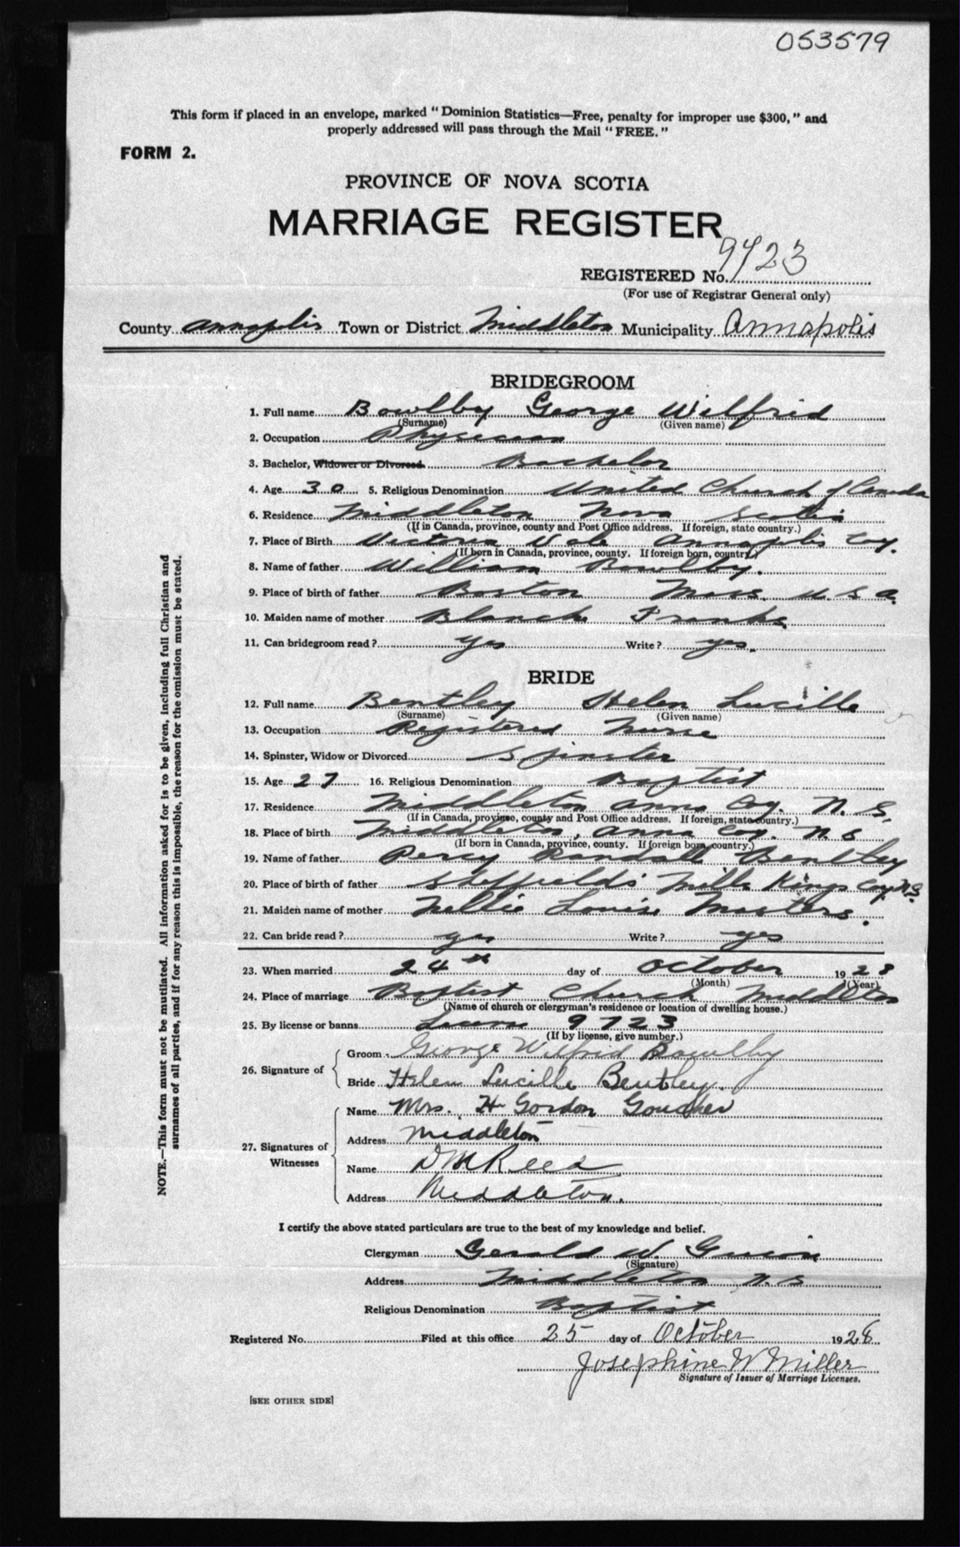 053579
This form if placed in an envelope, marked "Dominion Statistics—Free, penalty for improper use $300," and
properly addressed will pass through the Mail "FREE."
FORM 2.
PROVINCE OF NOVA SCOTIA
MARRIAGE REGISTER
REGISTERED No. 9723
(For use of Registrar General only)
County Annapolis Town or District Middleton Municipality Annapolis
BRIDEGROOM
1. Full name Bowlby George Wilfrid
(Surname) (Given name)
2. Occupation Physician
3. Bachelor, Widower or Divorced Bachelor
4. Age 30 5. Religious Denomination United Church of Canada
6. Residence Middleton Nova Scotia
(If in Canada, province, county and Post Office address. If foreign, state country.)
7. Place of Birth Victoria Vale Annapolis Coy.
(If born in Canada, province, county. If foreign born, country.)
8. Name of father William Bowlby.
9. Place of birth of father Boston Mass U.S.A.
10. Maiden name of mother Blanch Franks
11. Can bridegroom read? yes Write? yes.
BRIDE
12. Full name Bentley Helen Lucille
(Surname) (Given name)
13. Occupation Registered Nurse
14. Spinster, Widow or Divorced Spinster
15. Age 27 16. Religious Denomination Baptist
17. Residence Middleton Anna Coy. N.S.
(If in Canada, province, county and Post Office address. If foreign, state country.)
18. Place of birth Middleton, Anna Coy. N S
(If born in Canada, province, county. If foreign born, country.)
19. Name of father Percy Randall Bentley
20. Place of birth of father Sheffields Mills Kings Coy N.S.
21. Maiden name of mother Nellie Louise Masters.
22. Can bride read? yes Write? yes
23. When married 24th day of October 1928
(Month) (Year)
24. Place of marriage Baptist Church Middleton
(Name of church or clergyman's residence or location of dwelling house.)
25. By license or banns 9723
(If by license, give number.)
26. Signature of
Groom George Wilfred Bowlby
Bride Helen Lucille Bentley.
27. Signatures of Witnesses
Name Mrs. H Gordon Goucher
Address Middleton
Name D M Reed
Address Middleton.
I certify the above stated particulars are true to the best of my knowledge and belief.
Clergyman Gerald W.
(Signature)
Address Middleton N.S
Religious Denomination Baptist
Registered No. Filed at this office 25 day of October 1928
Josephine W Miller
Signature of Issuer of Marriage Licenses.
[SEE OTHER SIDE]
NOTE.—This form must not be mutilated. All information asked for is to be given, including full Christian and
surnames of all parties, and if for any reason this is impossible, the reason for the omission must be stated.